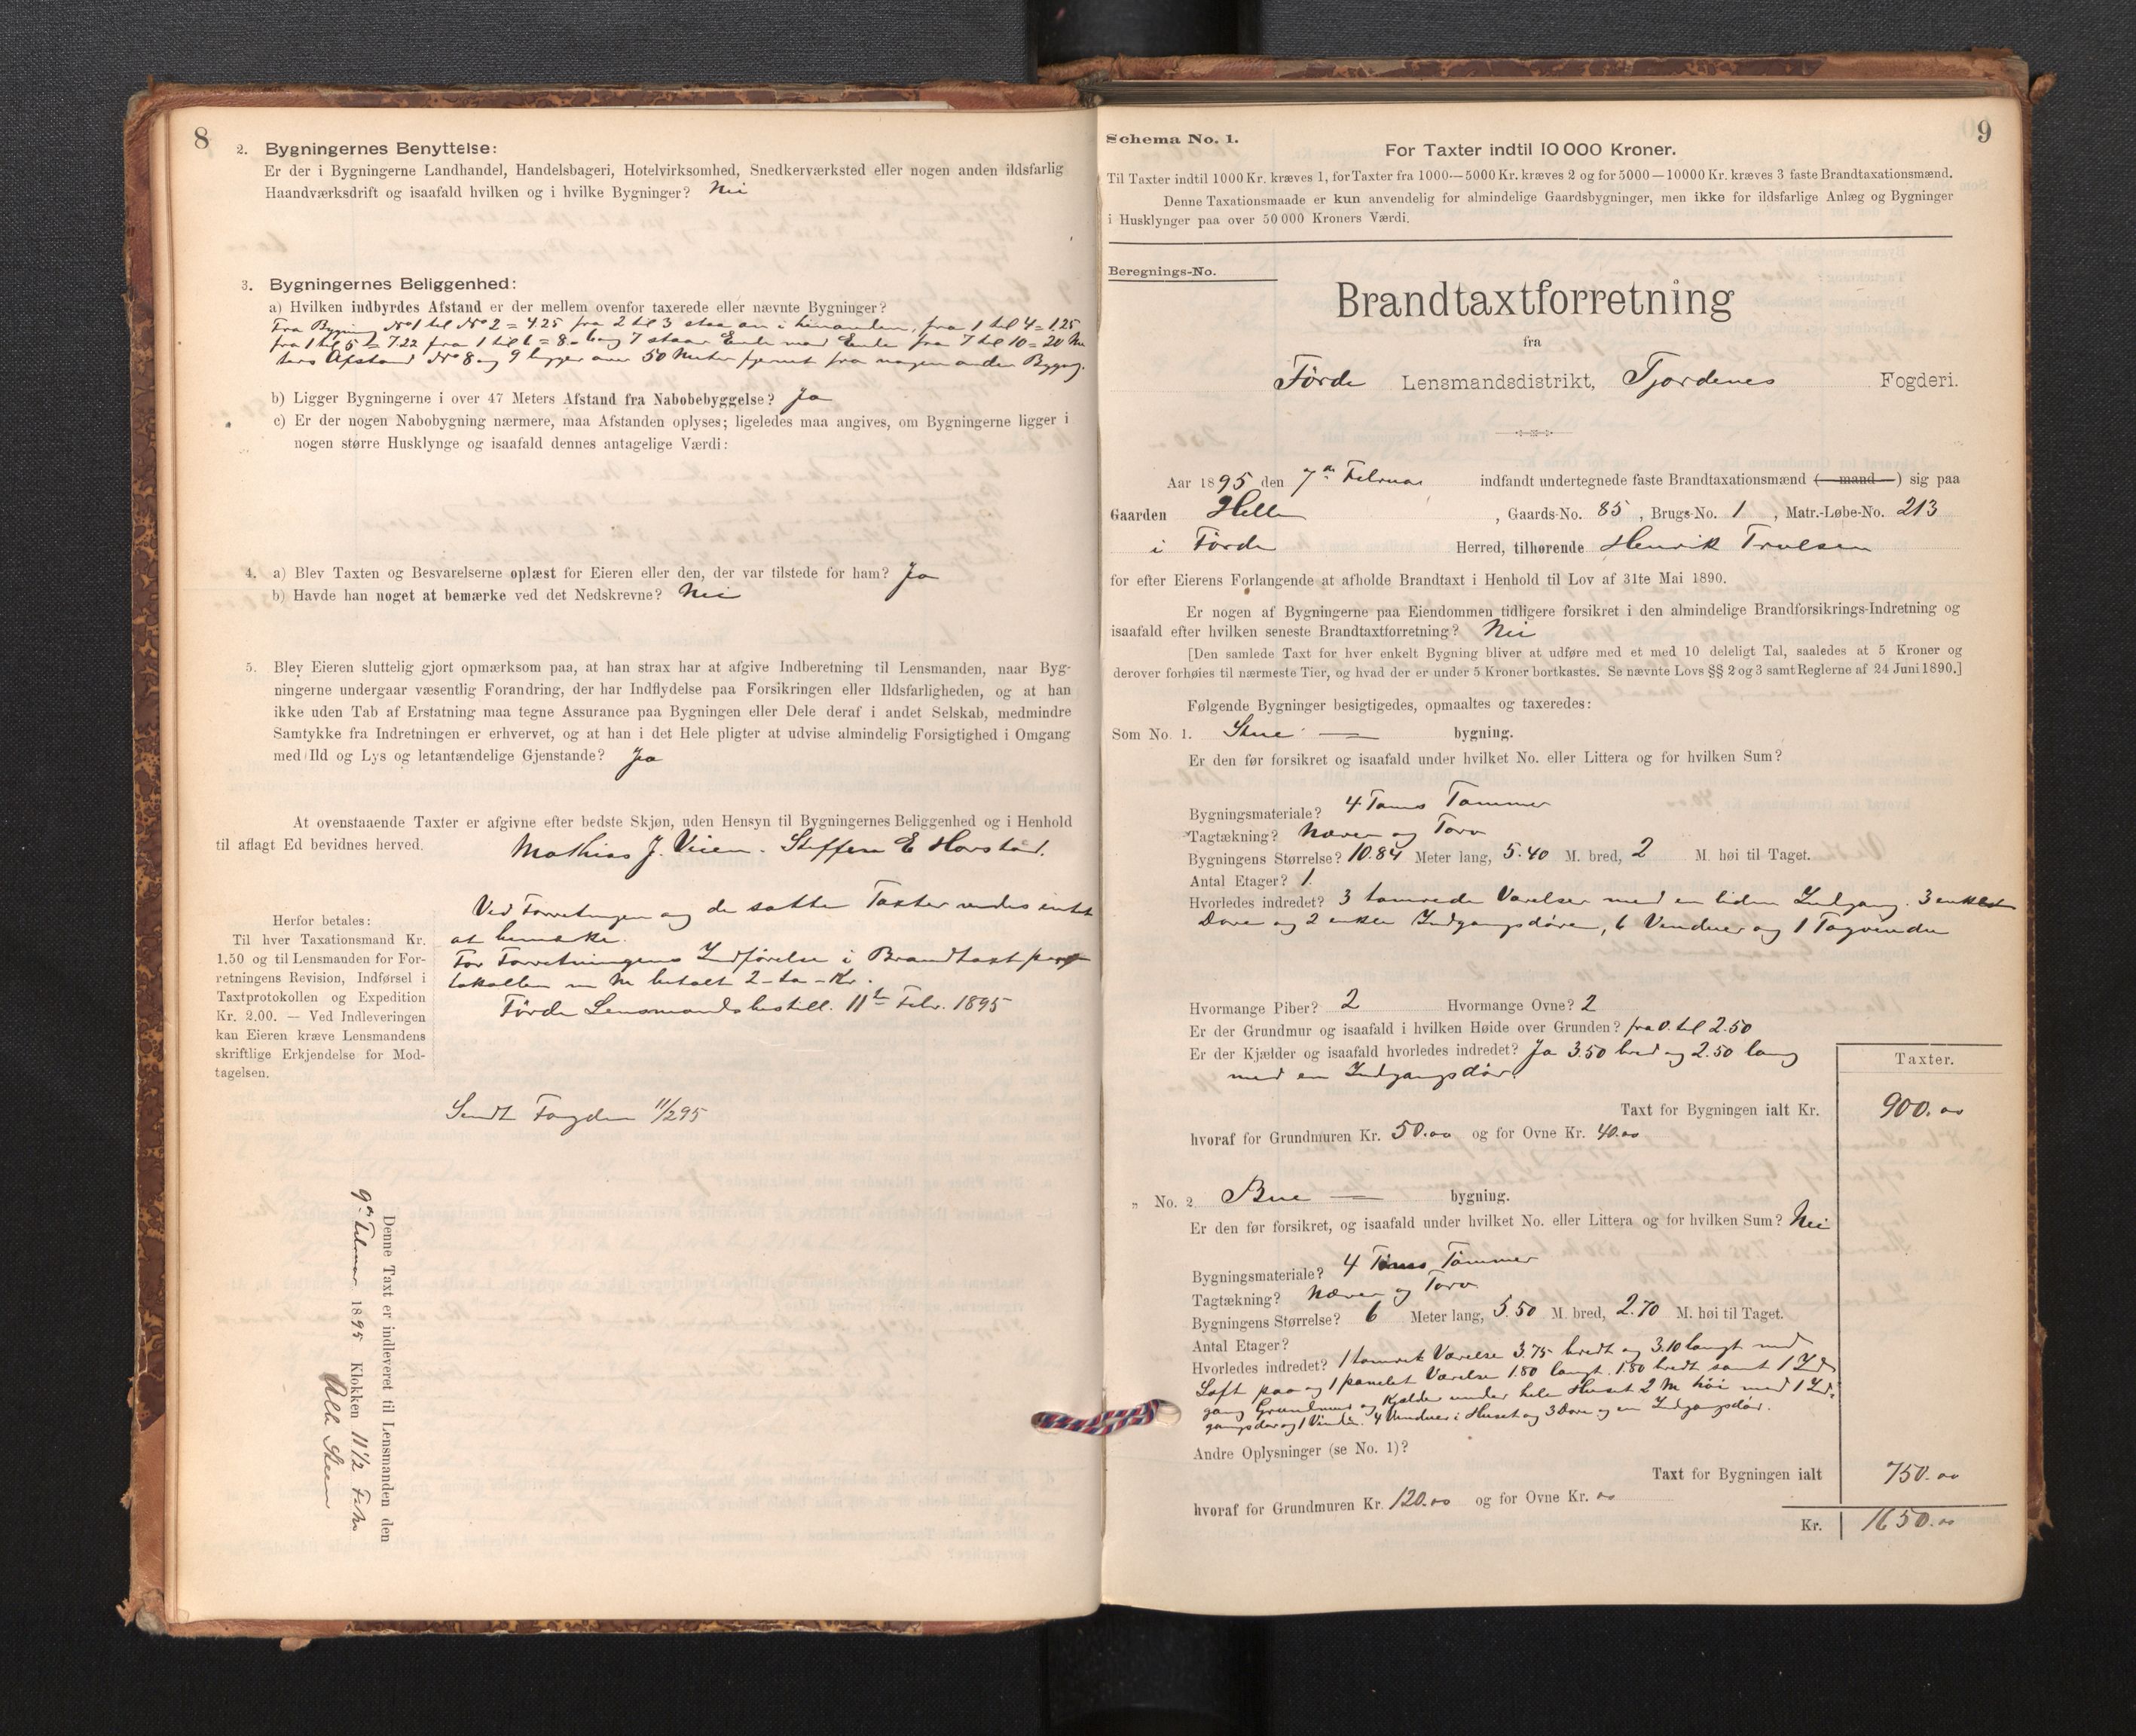 8
2. Bygningernes Benyttelse:
Er der i Bygningerne Landhandel, Handelsbageri, Hotelvirksomhed, Snedkerværksted eller nogen anden ildsfarlig
Haandværksdrift og isaafald hvilken og i hvilke Bygninger? Nei
3. Bygningernes Beliggenhed:
a) Hvilken indbyrdes Afstand er der mellem ovenfor taxerede eller nævnte Bygninger?
Fra Bygning No 1 til No 2 = 4.25 fra 2 til 3 staa an i hinanden, fra 1 til 4 = 1.25
fra 1 til 5 = 7.22 fra 1 til 6 = 8 - 6 og 7 staar Ende mod Ende fra 7 til 10 = 20 Me
ters Afstand No 8 og 9 ligger over 50 Meter fjernet fra nogen anden Bygng.
b) Ligger Bygningerne i over 47 Meters Afstand fra Nabobebyggelse? Ja
c) Er der nogen Nabobygning nærmere, maa Afstanden oplyses; ligeledes maa angives, om Bygningerne ligger i
nogen større Husklynge og isaafald dennes antagelige Værdi:
4. a) Blev Taxten og Besvarelserne oplæst for Eieren eller den, der var tilstede for ham? Ja
b) Havde han noget at bemærke ved det Nedskrevne? Nei
5. Blev Eieren sluttelig gjort opmærksom paa, at han strax har at afgive Indberetning til Lensmanden, naar Byg-
ningerne undergaar væsentlig Forandring, der har Indflydelse paa Forsikringen eller Ildsfarligheden, og at han
ikke uden Tab af Erstatning maa tegne Assurance paa Bygningen eller Dele deraf i andet Selskab, medmindre
Samtykke fra Indretningen er erhvervet, og at han i det Hele pligter at udvise almindelig Forsigtighed i Omgang
med Ild og Lys og letantændelige Gjenstande? Ja
At ovenstaaende Taxter er afgivne efter bedste Skjøn, uden Hensyn til Bygningernes Beliggenhed og i Henhold
til aflagt Ed bevidnes herved. Mathias J. Vieen. Steffen E Horstad.
Ved Forretningen og de satte Taxter vendes intet
at bemærke.
For Forretningens Indførelse i Brandtaxtpro
tokollen er betalt 2 - to - Kr.
Förde Lensmandsbestill. 11te Febr. 1895
Herfor betales:
Til hver Taxationsmand Kr.
1.50 og til Lensmanden for For-
retningens Revision, Indførsel i
Taxtprotokollen og Expedition
Kr. 2.00. — Ved Indleveringen
kan Eieren kræve Lensmandens
skriftlige Erkjendelse for Mod-
tagelsen.
Sendt Fogden 11/2 95
Denne Taxt er indleveret til Lensmanden den
9de Februar 1895 Klokken 11 1/2
9
Schema No. 1.
For Taxter indtil 10 000 Kroner.
Til Taxter indtil 1000 Kr. kræves 1, for Taxter fra 1000—5000 Kr. kræves 2 og for 5000—10000 Kr. kræves 3 faste Brandtaxationsmænd.
Denne Taxationsmaade er kun anvendelig for almindelige Gaardsbygninger, men ikke for ildsfarlige Anlæg og Bygninger
i Husklynger paa over 50 000 Kroners Værdi.
Beregnings-No.
Brandtaxtforretning
fra
Förde Lensmandsdistrikt, Fjordenes Fogderi.
Aar 1895 den 7de Februar indfandt undertegnede faste Brandtaxationsmænd (—mand—) sig paa
Gaarden Helle , Gaards-No. 85 , Brugs-No. 1 , Matr.-Løbe-No. 213
i Förde Herred, tilhørende Henrik Truelsen
for efter Eierens Forlangende at afholde Brandtaxt i Henhold til Lov af 31te Mai 1890.
Er nogen af Bygningerne paa Eiendommen tidligere forsikret i den almindelige Brandforsikrings-Indretning og
isaafald efter hvilken seneste Brandtaxtforretning? Nei
[Den samlede Taxt for hver enkelt Bygning bliver at udføre med et med 10 deleligt Tal, saaledes at 5 Kroner og
derover forhøies til nærmeste Tier, og hvad der er under 5 Kroner bortkastes. Se nævnte Lovs §§ 2 og 3 samt Reglerne af 24 Juni 1890.]
Følgende Bygninger besigtigedes, opmaaltes og taxeredes:
Som No. 1. Stue — bygning.
Er den før forsikret og isaafald under hvilket No. eller Littera og for hvilken Sum?
Bygningsmateriale? 4 Toms Tømmer
Tagtækning? Næver og Torv
Bygningens Størrelse? 10.84 Meter lang, 5.40 M. bred, 2 M. høi til Taget.
Antal Etager? 1.
Hvorledes indredet? 3 tømrede Værelser med en liden Indgang. 3 enkelt
Døre og 2 enkle Indgangsdøre, 6 Vinduer og 1 Tagvindu
Hvormange Piber? 2 Hvormange Ovne? 2
Er der Grundmur og isaafald i hvilken Høide over Grunden? fra 0 til 2.50
Er der Kjælder og isaafald hvorledes indredet? Ja 3.50 bred og 2.50 lang
med en Indgangsdør.
Taxter.
Taxt for Bygningen ialt Kr. 900.00
hvoraf for Grundmuren Kr. 50.00 og for Ovne Kr. 40.00
„ No. 2 Bue — bygning.
Er den før forsikret, og isaafald under hvilket No. eller Littera og for hvilken Sum? Nei
Bygningsmateriale? 4 Toms Tømmer
Tagtækning? Næver og Torv
Bygningens Størrelse? 6 Meter lang, 5.50 M. bred, 2.70 M. høi til Taget.
Antal Etager?
Hvorledes indredet? 1 tømret Værelse 3.75 bredt og 3.10 langt med
Loft paa og 1 panelet Værelse 1.80 langt 1.80 bredt samt 1 Ind
gang Grundmur og Kjelder under hele Huset 2 M høi med 1 Ind-
gangsdør og 1 Vindu. 4 Vinduer i Huset og 3 Døre og en Indgangsdør.
Andre Oplysninger (se No. 1)?
Taxt for Bygningen ialt 750.00
hvoraf for Grundmuren Kr. 120.00 og for Ovne Kr. 00
Kr. 1650.00